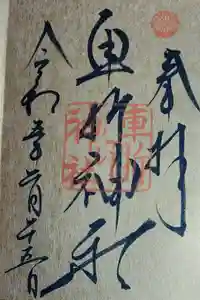 奉拝
車折神社
車折
神社
令和 年 月 五日